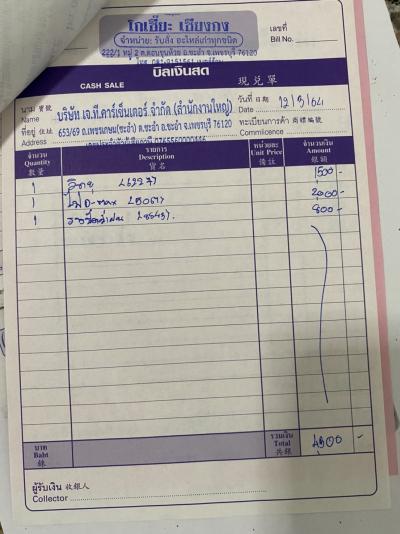 โกเฮี๊ยะ เชียงกง
จำหน่าย: รับสั่ง อะไหล่เก่าทุกชนิด
222/1 หมู่ 2 ต.ดอนขุนห้วย อ.ชะอำ จ.เพชรบุรี 76120
เลขที่
Bill No.
บิลเงินสด
CASH SALE
現兑單
นาม 寶號
Name
บริษัท เจ.ที.คาร์เซ็นเตอร์ จำกัด (สำนักงานใหญ่)
วันที่ 日期
Date 12/3/64
ที่อยู่ 住址
Address
653/69 ถ.เพชรเกษม(ชะอำ) ต.ชะอำ อ.ชะอำ จ.เพชรบุรี 76120
ทะเบียนการค้า 商標編號
Commercience
จำนวน รายการ หน่วยละ จำนวนเงิน
Quantity Description Unit Price Amount
數量 寶名 備註 銀額
1 1500 -
1 ไฟ D-max 2000 -
1 800 -
บาท
Baht
銖
รวมเงิน
Total
共銀
4300 -
ผู้รับเงิน 收銀人
Collector